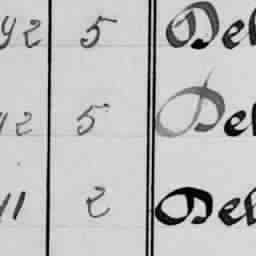 42 5 Del
42 5 Del
41 2 Del